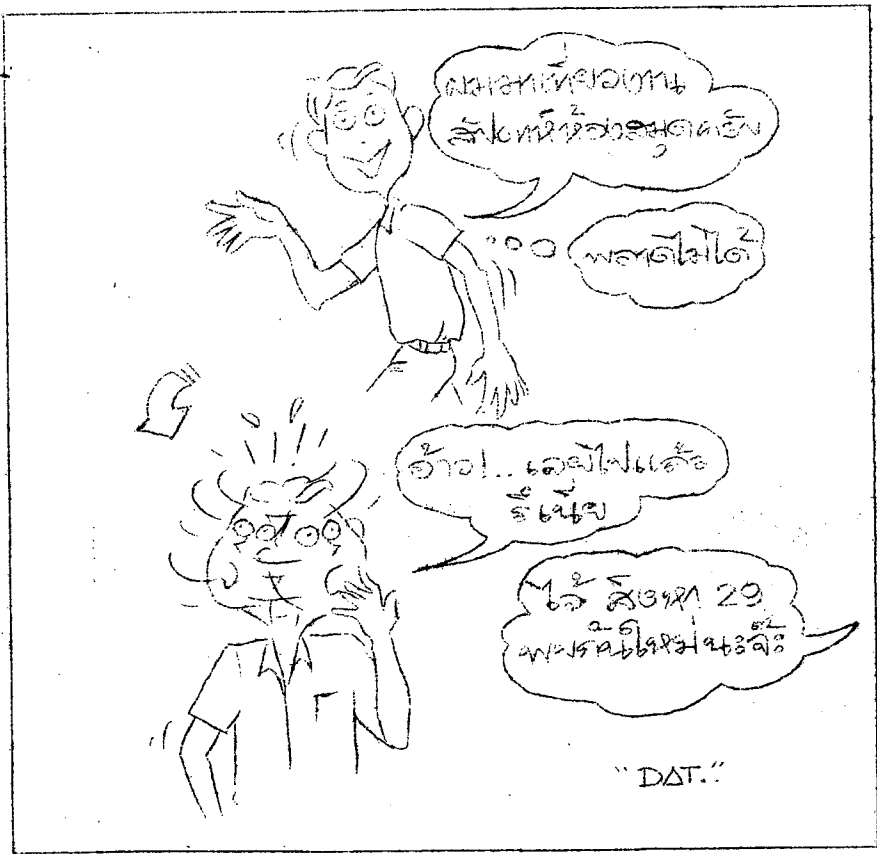 ผมมาเที่ยวงาน
สัปดาห์ห้องสมุดครับ
พลาดไม่ได้
อ้าว!.. เลยไปแล้ว
รึเนี่ย
ไว้ สิงหา 29
พบกันใหม่นะจ๊ะ
"DAT."